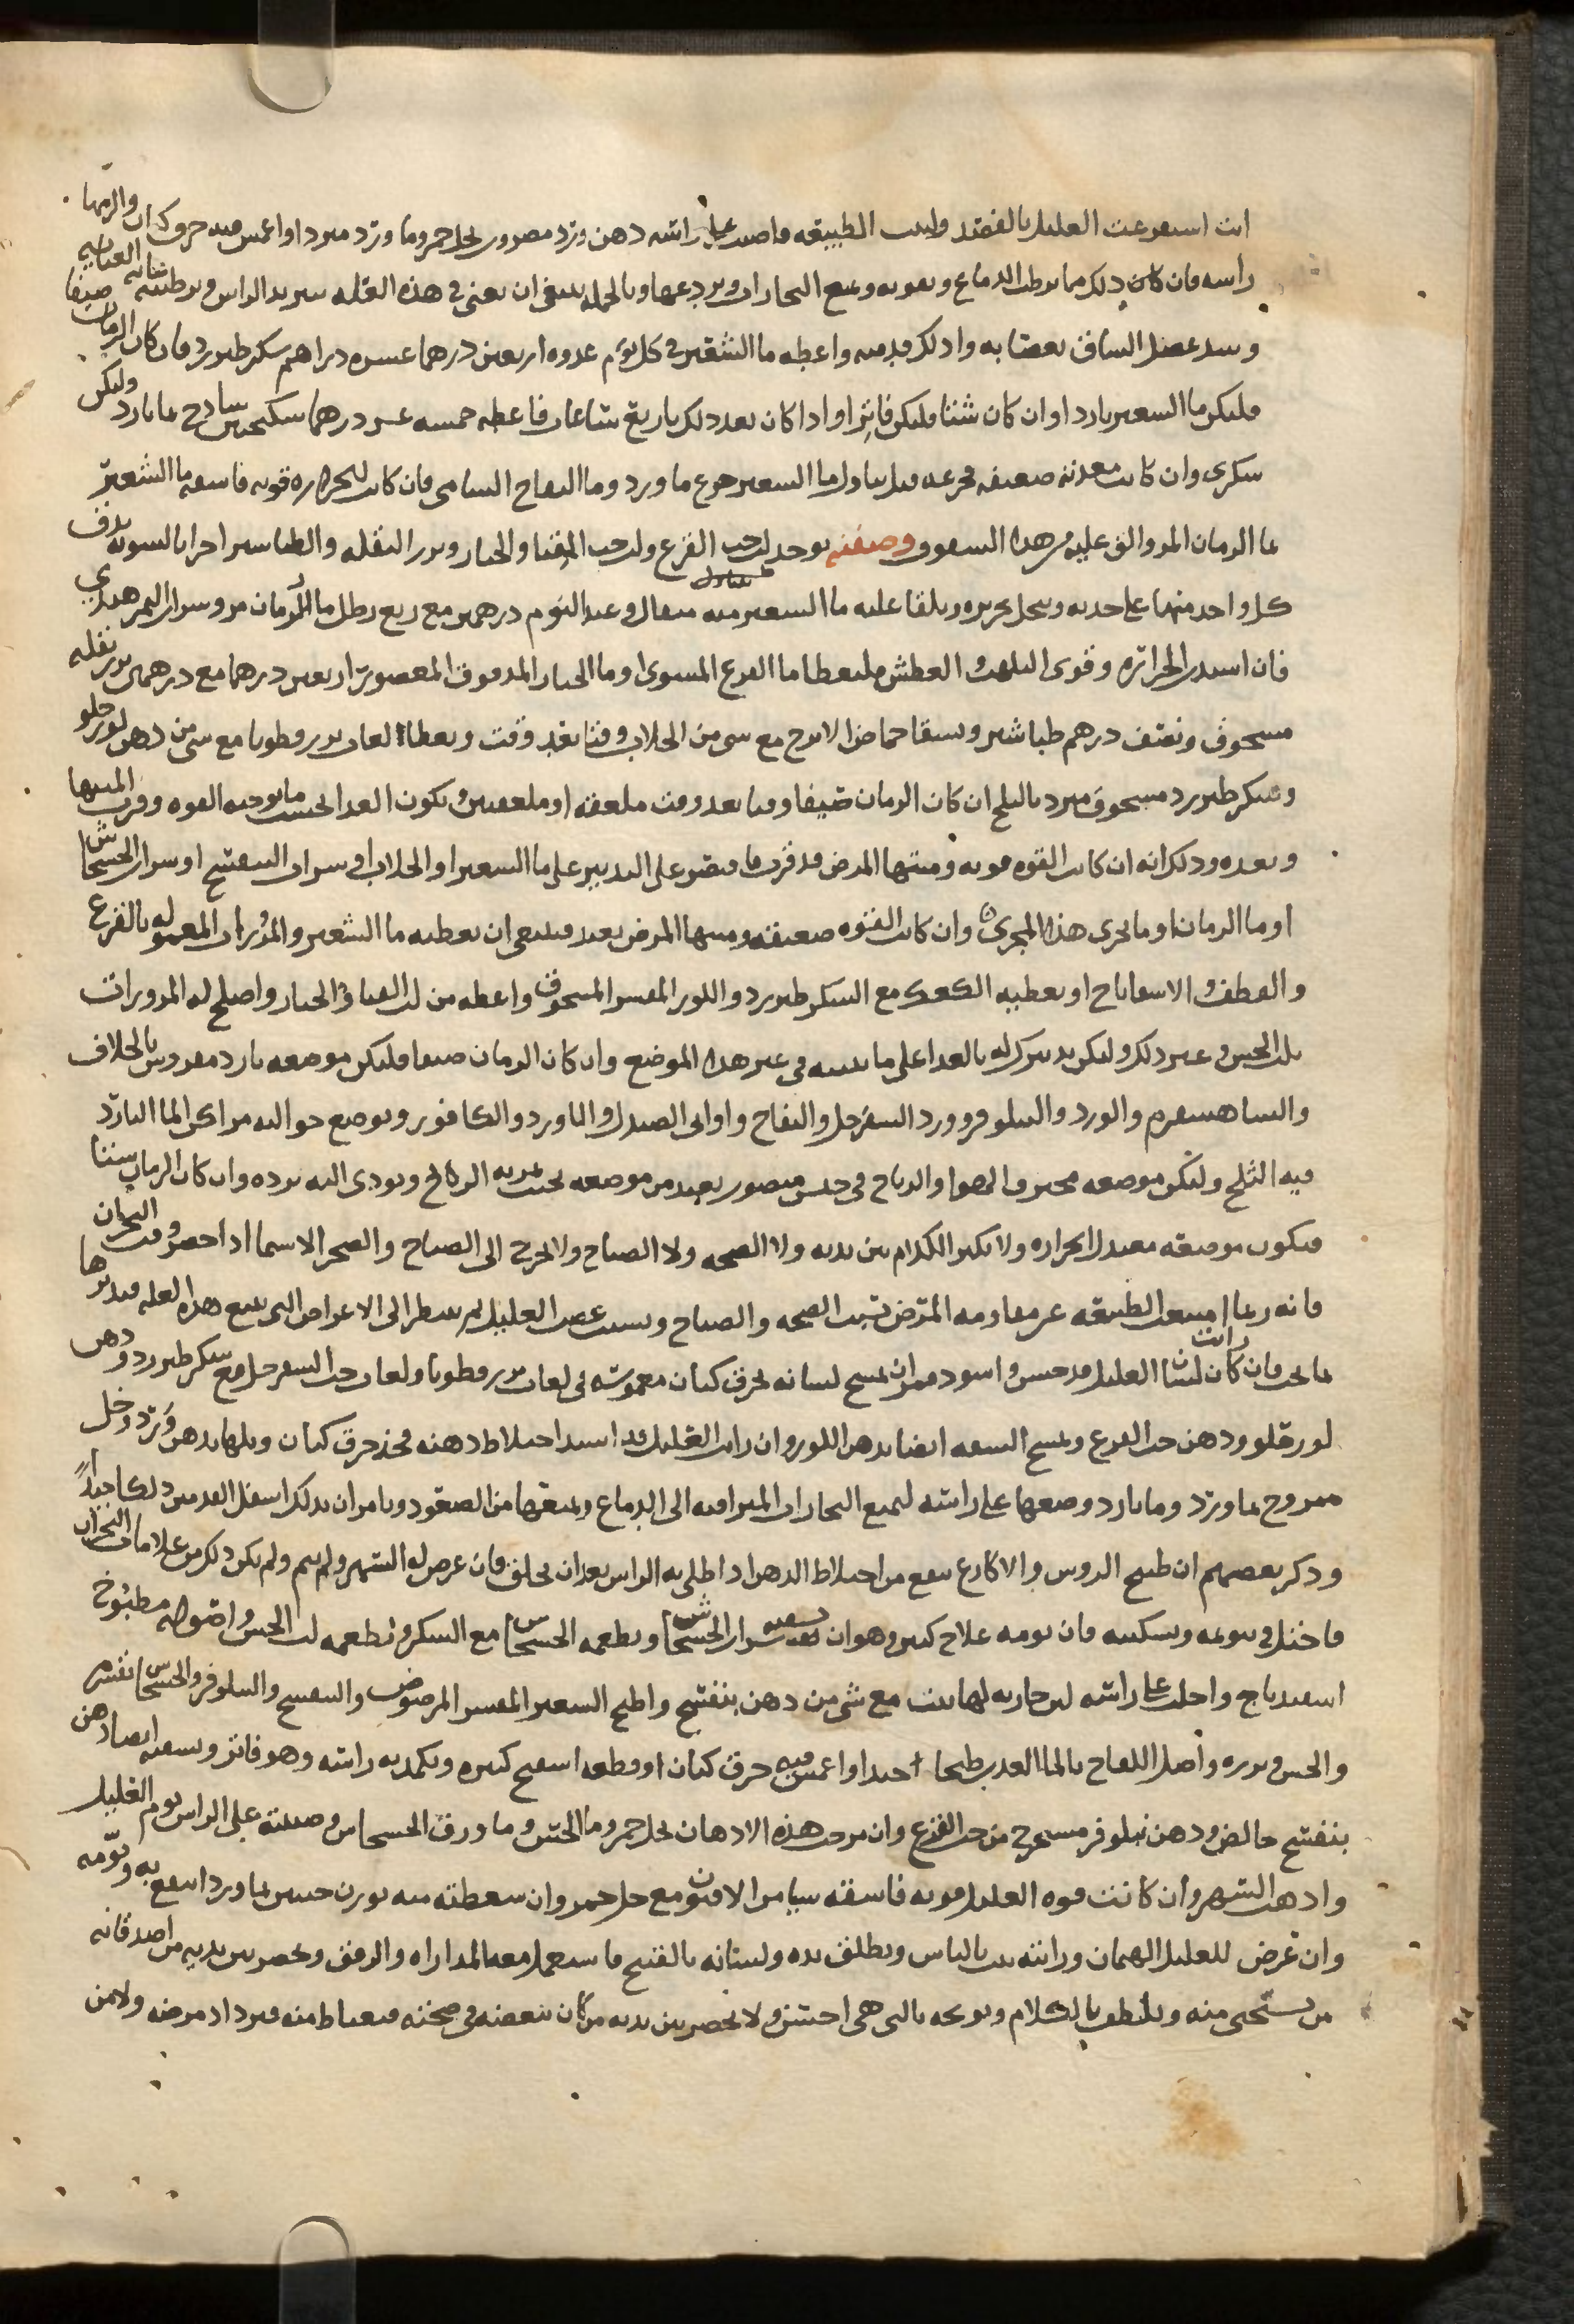 انت استفرغت العليل بالفصد ولين الطبيعه فاصبب على راسه دهن ورد مضروب بخل خمر وما ورد مبرد او اغمس فيه خرق كتان والزمها
راسه فان كان ذلك مما يرطب الدماغ ويقويه ويمنع البخارات ويردعها وبالجمله ينبغي ان يعنى في هذه العله بتبريد الراس وترطيبه غايه العنايه
وشد عضل الساق بعصابه وادلك قدميه واعطه ما الشعير في كل يوم غدوه اربعين درهما عشره دراهم سكر طبرزد فان كان الزمان صيفا
فليكن ما الشعير باردا وان كان شتا فليكن فاترا واذا كان بعد ذلك باربع ساعات فاعطه خمسه عشر درهما سكنجبين سادج بما بارد وليكن
سكري وان كانت معدته ضعيفه فجرعه قبل تناول ما الشعير جرع ما ورد وما التفاح الشامي فان كانت الحراره قويه فاسقه ما الشعير
بما الرمان المز والق عليه من هذا السفوف وصفته يوخذ لب حب القرع ولب حب القثا والخيار وبزر البقله والطباشير اجزا بالسويه يدق
كل واحد منها على حدته وينخل بحريره ويلقا عليه ما الشعير منه مثقال وعند النوم درهمين مع ربع رطل ما الرمان مز وشراب التمر هندي
فان اشتدت الحراره وقوى التلهب والعطش فليعطا ما القرع المشوى او ما الخيار المدقوق المعصور اربعين درهما مع درهمين بزر بقله
مسحوق ونصف درهم طباشير ويسقا حماض الاترج مع شي من الجلاب وقتا بعد وقت ويعطا لعاب بزر قطونا مع شي من دهن لوز حلو
وسكر طبرزد مسحوق مبرد بالثلج ان كان الزمان صيفا وقتا بعد وقت ملعقه او ملعقتين ويكون الغدا بحسب ما توجبه القوه وقرب المنتها
وبعده وذلك انه ان كانت القوه قويه ومنتها المرض قد قرب فاقتصر على التدبير على ما الشعير او الجلاب او شراب البنفسج او شراب الخشخاش
او ما الرمان او ما يجري هذا المجرى وان كانت القوه ضعيفه ومنتها المرض بعيد فينبغي ان يعطيه ما الشعير والمزورات المعموله بالقرع
والقطف والاسفاناخ او يعطيه الكعك مع السكر طبرزد واللوز المقشر المسحوق واعطه من لب القثا والخيار واصلح له المزورات
بلب الخس وغير ذلك وليكن تدبيرك له بالغدا على ما نبينه في غير هذا الموضع وان كان الزمان صيفا فليكن موضعه بارد مفروش بالخلاف
والشاهسفرم والورد والنيلوفر وورد السفرجل والتفاح واواني الصندل والماورد والكافور ويوضع حواليه مراكن الما البارد
فيه الثلج وليكن موضعه مخترق الهوا والرياح في بعيد من موضعه بحيث الرياح ويودى اليه برده وان كان الزمان شتا
فيكون موضعه معتدل الحراره ولا يكثر الكلام بين يديه ولا الضجه ولا الصياح ولا يحرج الى الصياح والضجر لا سيما اذا حضر وقت البحران
فانه ربما الطبيعه عن مقاومه المرض بسبب الضجه والصياح وبسبب غضب العليل ثم ينظر الى الاعراض التي تتبع هذه العله فتدبرها
بما يجب فان كان رايت لسان العليل قد خشن واسود فمر ان يمسح لسانه بخرق كتان مغموسه في لعاب بزر قطونا ولعاب حب السفرجل مع سكر طبرزد ودهن
لوز حلو ودهن حب القرع ويمسح الشفه ايضا بدهن اللوز وان رايت العليل قد اشتد اختلاط ذهنه فخذ خرق كتان وبلها بدهن ورد وخل
ممزوج بما ورد وما بارد وضعها على راسه ليمنع البخارات المتراقيه الى الدماغ ويمنعها من الصعود ويامر ان يدلك اسفل القدمين دلكا جيدا
وذكر بعضهم ان طبيخ الروس والاكارع ينفع من اختلاط الذهن اذا طلي به الراس بعد ان يحلق فان عرض له السهر ولم ينم ولم يكن ذلك من علامات البحران
فاحتل في تنويمه وتسكينه فان نومه علاج كبير وهو ان تسقيه شراب الخشخاش وتطعمه الخشخاش مع السكر وتطعمه لب الخس واصوله مطبوخ
اسفيدباج واحلب على راسه لبن جاريه لها بنت مع شي من دهن بنفسج واطبخ الشعير المقشر المرضوض والبنفسج والنيلوفر والخشخاش بقشره
والخس وبزره واصل اللفاح بالما العذب طبخا جيدا واغمس فيه خرق كتان او قطعه اسفنج كبيره وكمد به راسه وهو فاتر وسعطه ايضا دهن
بنفسج خالص ودهن نيلوفر مستخرج من حب القرع وان مزجت هذه الادهان بخل خمر وما الخس وما ورق الخشخاش وصببته على الراس نوم العليل
واذهب السهر وان كانت قوه العليل قويه فاسقه شيا من الافيون مع خل خمر وان سعطته منه بوزن حبتين بما ورد انتفع به ونومه
وان عرض للعليل الهيمان ورايته يثب بالناس ويطلق يده ولسانه بالقبيح فاستعمل معه المداراه والرفق وتحضر بين يديه من اصدقائه
من يستحي منه ويلطف بالكلام ويوبخه بالتي هي احسن ولا يحضر بين يديه من كان يبغضه في صحته فيغتاظ منه فيزداد مرضه ولا من